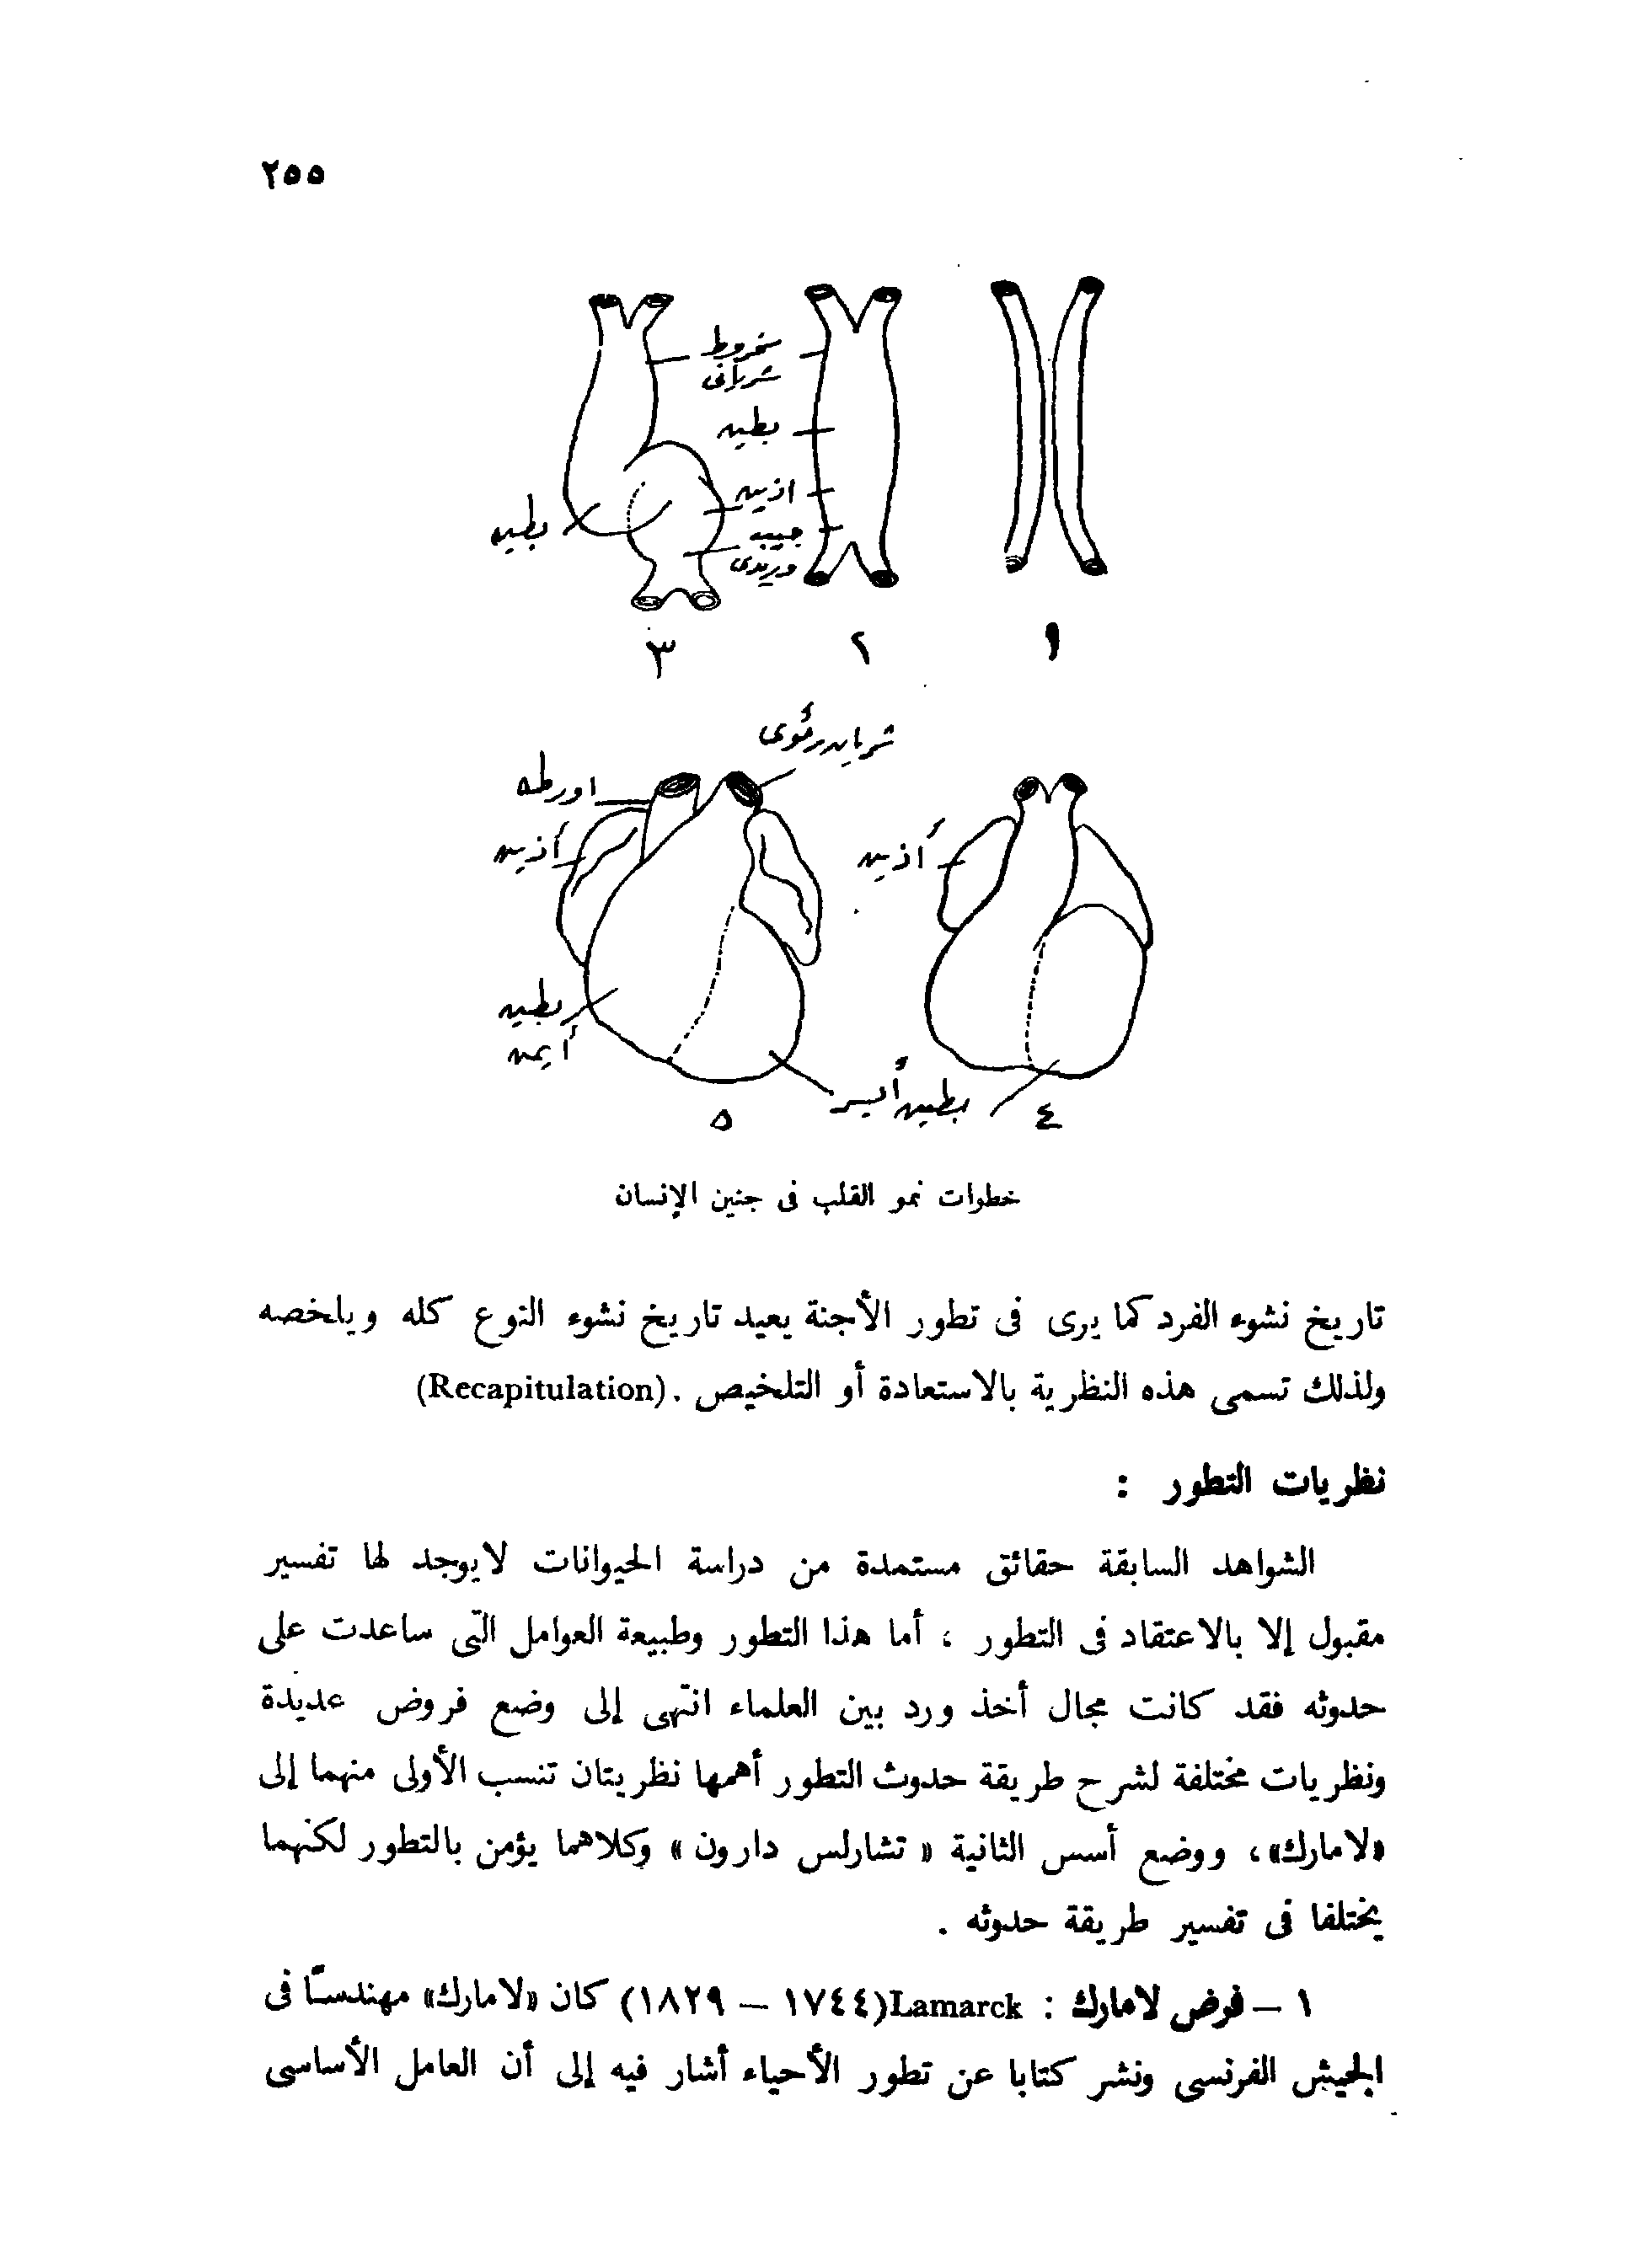 ٢٥٥
مخروط
شريانى
بطين
اذين
جيب
وريدى
بطين
١
٢
٣
شريان رئوى
اورطه
أذين
أذين
بطين
أيمن
بطين أيسر
٤
٥
خطوات نمو القلب فى جنين الإنسان
تاريخ نشوء الفرد كما يرى فى تطور الأجنة يعيد تاريخ نشوء النوع كله ويلخصه
ولذلك تسمى هذه النظرية بالاستعادة أو التلخيص .(Recapitulation)
نظريات التطور :
الشواهد السابقة حقائق مستمدة من دراسة الحيوانات لايوجد لها تفسير
مقبول إلا بالاعتقاد فى التطور ، أما هذا التطور وطبيعة العوامل التى ساعدت على
حدوثه فقد كانت مجال أخذ ورد بين العلماء انتهى إلى وضع فروض عديدة
ونظريات مختلفة لشرح طريقة حدوث التطور أهمها نظريتان تنسب الأولى منهما إلى
«لامارك»، ووضع أسس الثانية « تشارلس دارون » وكلاهما يؤمن بالتطور لكنهما
يختلفا فى تفسير طريقة حدوثه .
١ – فرض لامارك : Lamarck(١٧٤٤ – ١٨٢٩) كان «لامارك» مهندساً فى
الجيش الفرنسى ونشر كتابا عن تطور الأحياء أشار فيه إلى أن العامل الأساسى